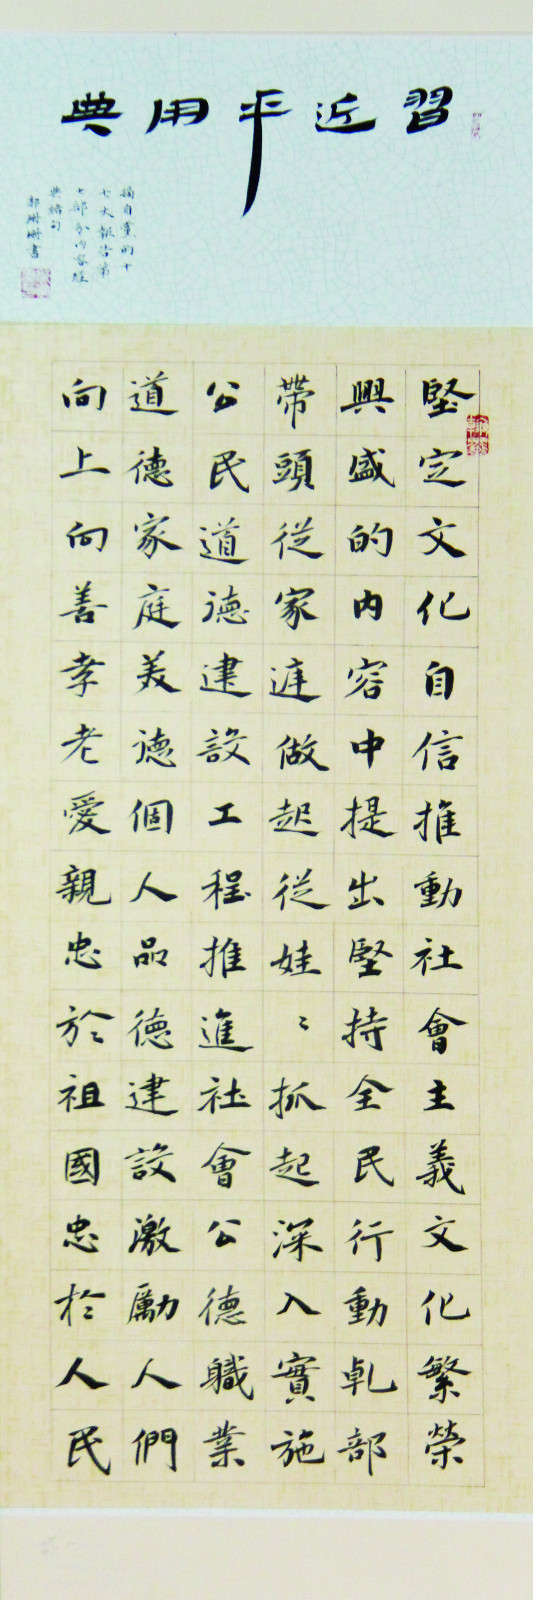 習近平用典
堅定文化自信推動社會主義文化繁榮
興盛的内容中提出堅持全民行動乹部
帶頭從家庭做起從娃〻抓起深入實施
公民道德建設工程推進社會公德職業
道德家庭美德個人品德建設激勵人們
向上向善孝老愛親忠於祖國忠於人民
摘自黨的十
七大報告第
七部分内容經
典語句
郭珊珊書